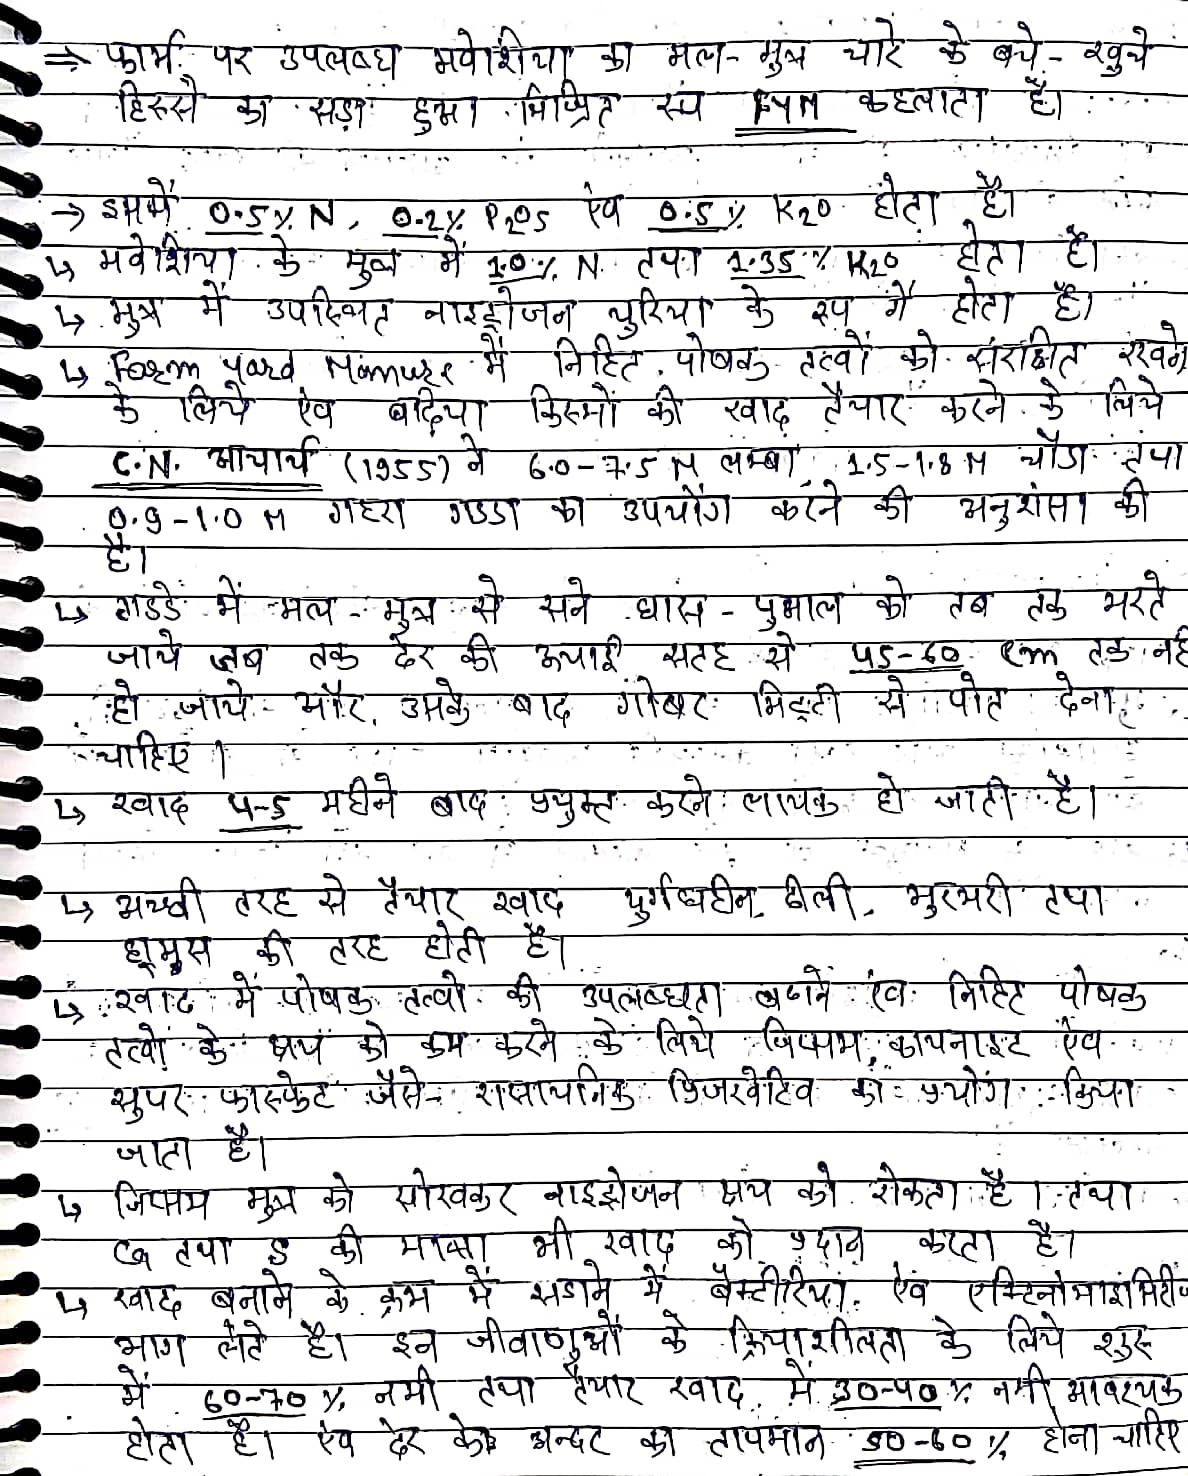 ⇒ फार्म पर उपलब्ध मवेशिया का मल-मुत्र चारे के बचे-खुचे
हिस्से का सड़ा हुआ मिश्रित रूप FYM कहलाता है।
→ इसमें 0.5% N, 0.2% P₂O₅ एंव 0.5% K₂O होता है।
↳ मवेशिया के मुत्र में 1.0% N तथा 1.35% K₂O होता है।
↳ मुत्र में उपस्थित नाइट्रोजन युरिया के रूप में होता है।
↳ Farm yard Manure में निहित पोषक तत्वों को संरक्षित रखने
के लिये एंव बढिया किस्मों की खाद तैयार करने के लिये
C.N. आचार्य (1955) ने 6.0-7.5 M लम्बा 1.5-1.8 M चौडा तथा
0.9-1.0 M गहरा गडडा का उपयोग करने की अनुशंसा की
है।
↳ गडडे में मल-मुत्र से सने घास-पुआल को तब तक भरते
जाये जब तक ढेर की ऊचाई सतह से 45-60 cm तक नही
हो जाये और उसके बाद गोबर मिट्टी से पोत देना
चाहिए।
↳ खाद 4-5 महीने बाद प्रयुक्त करने लायक हो जाती है।
↳ अच्छी तरह से तैयार खाद दुर्गंधहीन, ढीली, भुरभरी तथा
ह्मुस की तरह होती है।
↳ खाद में पोषक तत्वो की उपलब्धता बढाने एंव निहित पोषक
तत्वों के क्षय को कम करने के लिये जिप्सम, कायनाइट एंव
सुपर फास्फेट जैसे रासायनिक प्रिजरवेटिव का प्रयोग किया
जाता है।
↳ जिप्सम मुत्र को सोखकर नाइट्रोजन क्षय को रोकता है। तथा
Ca तथा S की मात्रा भी खाद को प्रदान करता है।
↳ खाद बनाने के क्रम में सडाने में बैक्टीरिया एंव एक्टिनोमाइसिटीज
भाग लेते है। इन जीवाणुओं के क्रियाशीलता के लिये शुरू
में 60-70% नमी तथा तैयार खाद में 30-40% नमी आवश्यक
होता है। एंव ढेर के अन्दर का तापमान 50-60% होना चाहिए